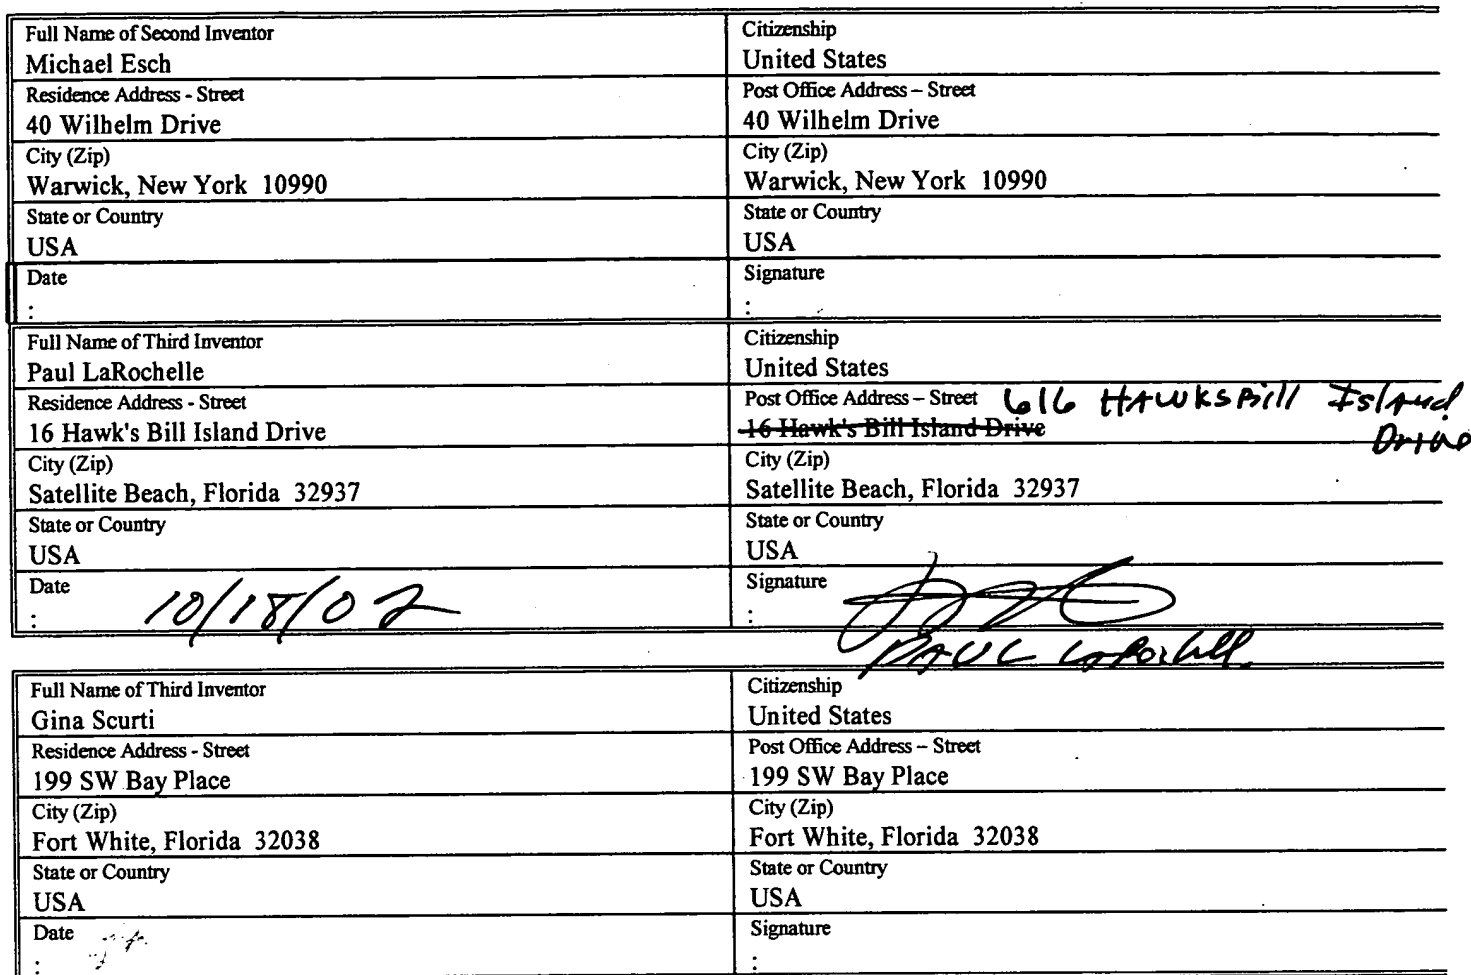 Full Name of Second Inventor
Michael Esch
Citizenship
United States
Residence Address - Street
40 Wilhelm Drive
Post Office Address – Street
40 Wilhelm Drive
City (Zip)
Warwick, New York 10990
City (Zip)
Warwick, New York 10990
State or Country
USA
State or Country
USA
Date
:
Signature
:
Full Name of Third Inventor
Paul LaRochelle
Citizenship
United States
Residence Address - Street
16 Hawk's Bill Island Drive
Post Office Address – Street 616 HAWKSBill Island
Drive
16 Hawk's Bill Island Drive
City (Zip)
Satellite Beach, Florida 32937
City (Zip)
Satellite Beach, Florida 32937
State or Country
USA
State or Country
USA
Date
: 10/18/02
Signature
:
PAUL
Full Name of Third Inventor
Gina Scurti
Citizenship
United States
Residence Address - Street
199 SW Bay Place
Post Office Address – Street
199 SW Bay Place
City (Zip)
Fort White, Florida 32038
City (Zip)
Fort White, Florida 32038
State or Country
USA
State or Country
USA
Date
:
Signature
: